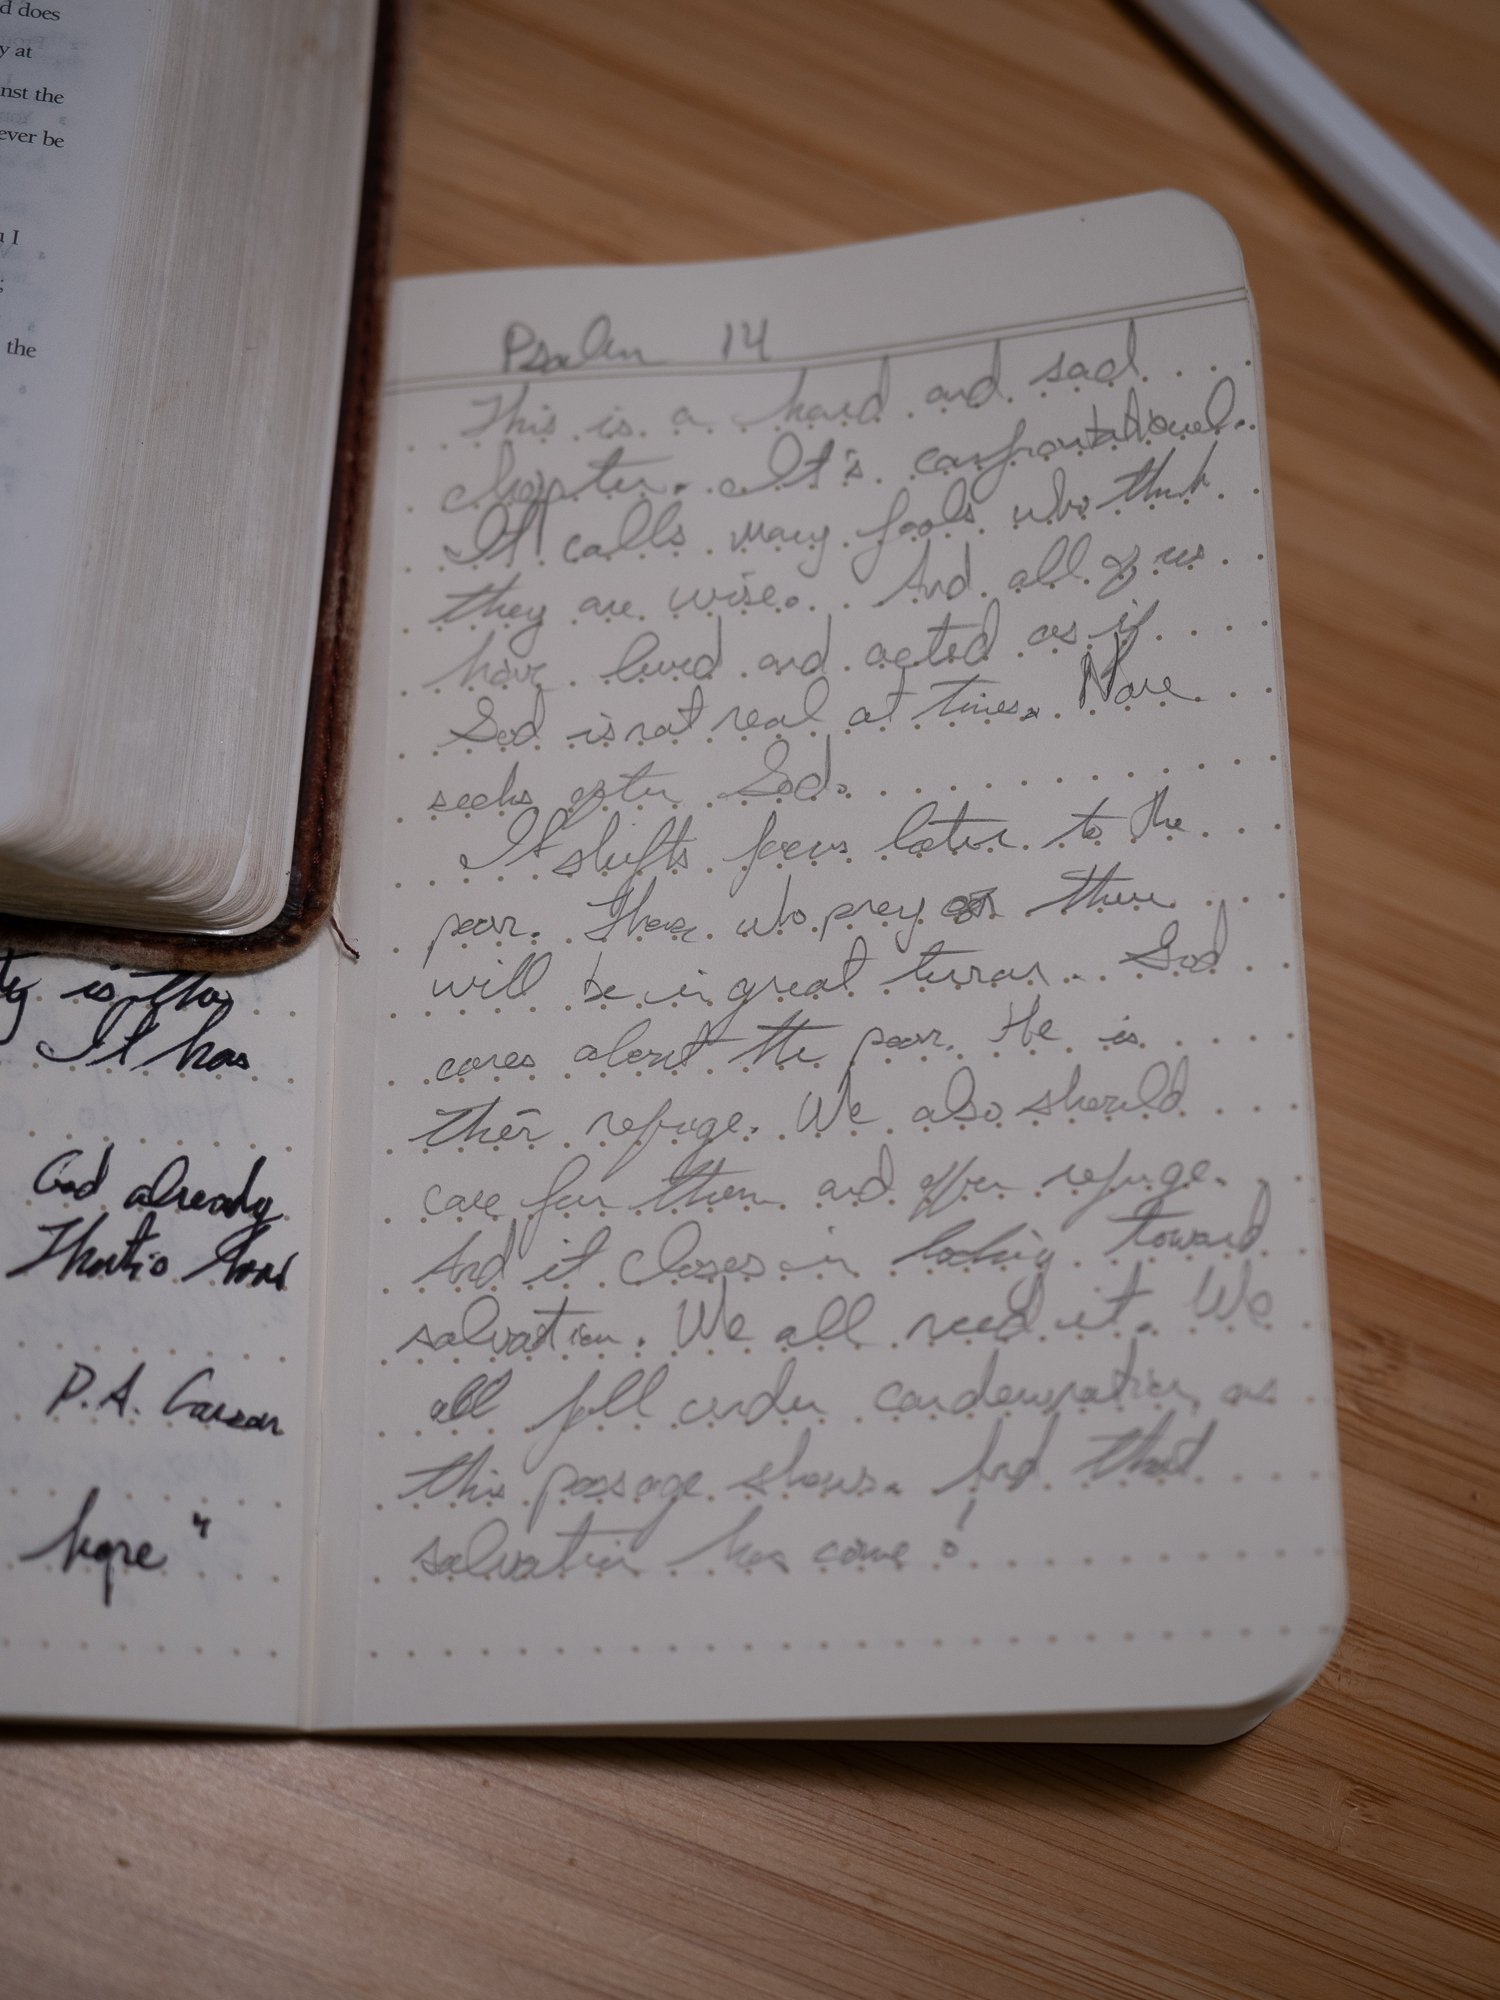 d does
y at
nst the
ever be
I
;
the
is
It has
God already
P.A. Carson
hope"
Psalm 14
This is a hard and sad
chapter. It's confrontational.
It calls many fools who think
they are wise. And all of us
have lived and acted as if
God is not real at times. None
seeks after God.
It shifts focus later to the
poor. Those who prey on them
will be in great terror. God
cares about the poor. He is
their refuge. We also should
care for them and offer refuge.
And it closes in looking toward
salvation. We all need it. We
all fall under condemnation, as
this passage shows. And that
salvation has come!